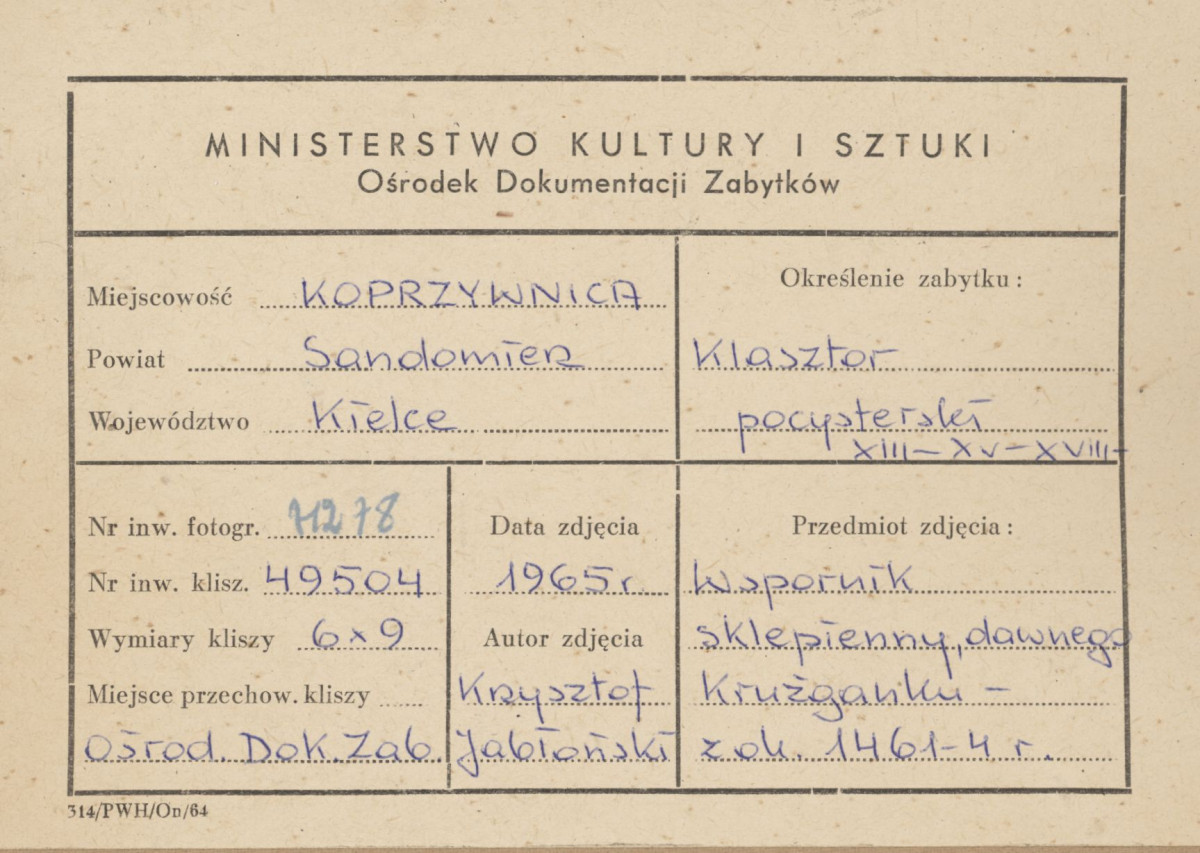 MINISTERSTWO KULTURY I SZTUKI
Ośrodek Dokumentacji Zabytków
Miejscowość KOPRZYWNICA
Powiat Sandomierz
Województwo Kielce
Określenie zabytku:
Klasztor
pocysterski
XIII-XV-XVIII
Nr inw. fotogr. 71278
Nr inw. klisz. 49504
Wymiary kliszy 6x9
Miejsce przechow. kliszy
Ośrod. Dok. Zab.
Data zdjęcia
1965 r.
Autor zdjęcia
Krzysztof
Jabłoński
Przedmiot zdjęcia:
Wspornik
sklepienny, dawnego
Krużganku -
z ok. 1461-4 r.
314/PWH/On/64